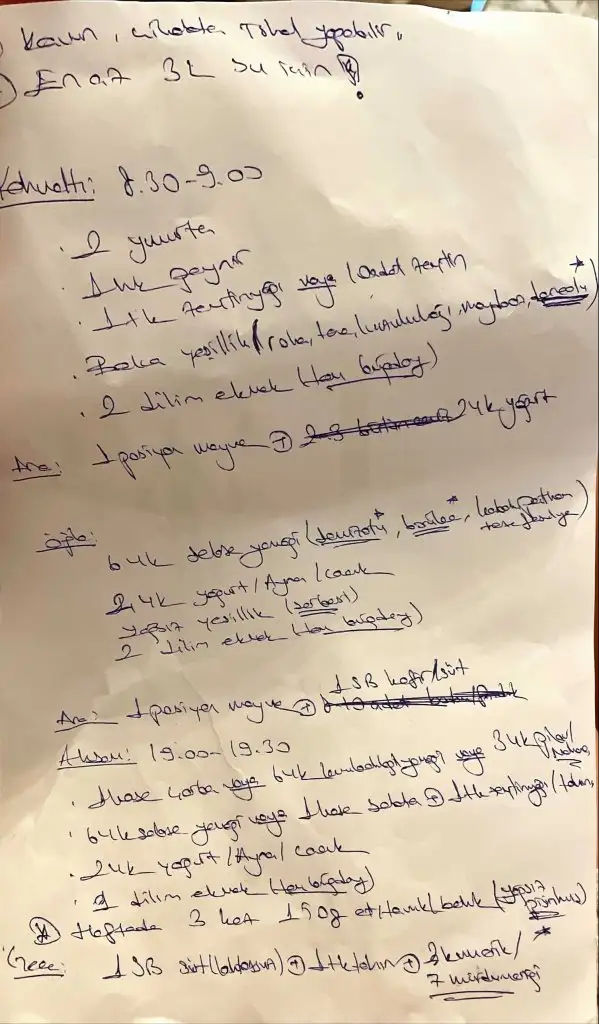 Kavun, çikolata Tokal yapabilir.
En az 3L su için!
Kahvaltı: 8.30-9.00
. 2 yumurta
. 1 peynir
. 1tk zeytinyağı veya 10 adet zeytin
. yeşillik (roka, tere, kuzukulağı, maydanoz, dereotu)*
. 2 dilim ekmek (tam buğday)
Ara: 1 porsiyon meyve + 2 yk yoğurt
Öğle:
6 yk sebze yemeği (semizotu*, börülce*, kabak, patlıcan
taze fasulye)
2 yk yoğurt/Ayran/cacık
yağsız yeşillik (serbest)
2 dilim ekmek (tam buğday)
Ara: 1 porsiyon meyve + 1SB kefir/süt
Akşam: 19.00-19.30
. 1 kase çorba veya 6 yk kurubaklagil yemeği veya 3 yk pilav/
makarna
. 6 yk sebze yemeği veya 1 kase salata + 1tk zeytinyağı/
. 2 yk yoğurt/Ayran/cacık
. 2 dilim ekmek (tam buğday)
* Haftada 3 kez 150g et/tavuk/balık (yağsız
pişirilmiş)
Gece: 1 SB süt (laktozsuz) + 1tk tahin + 2k
7